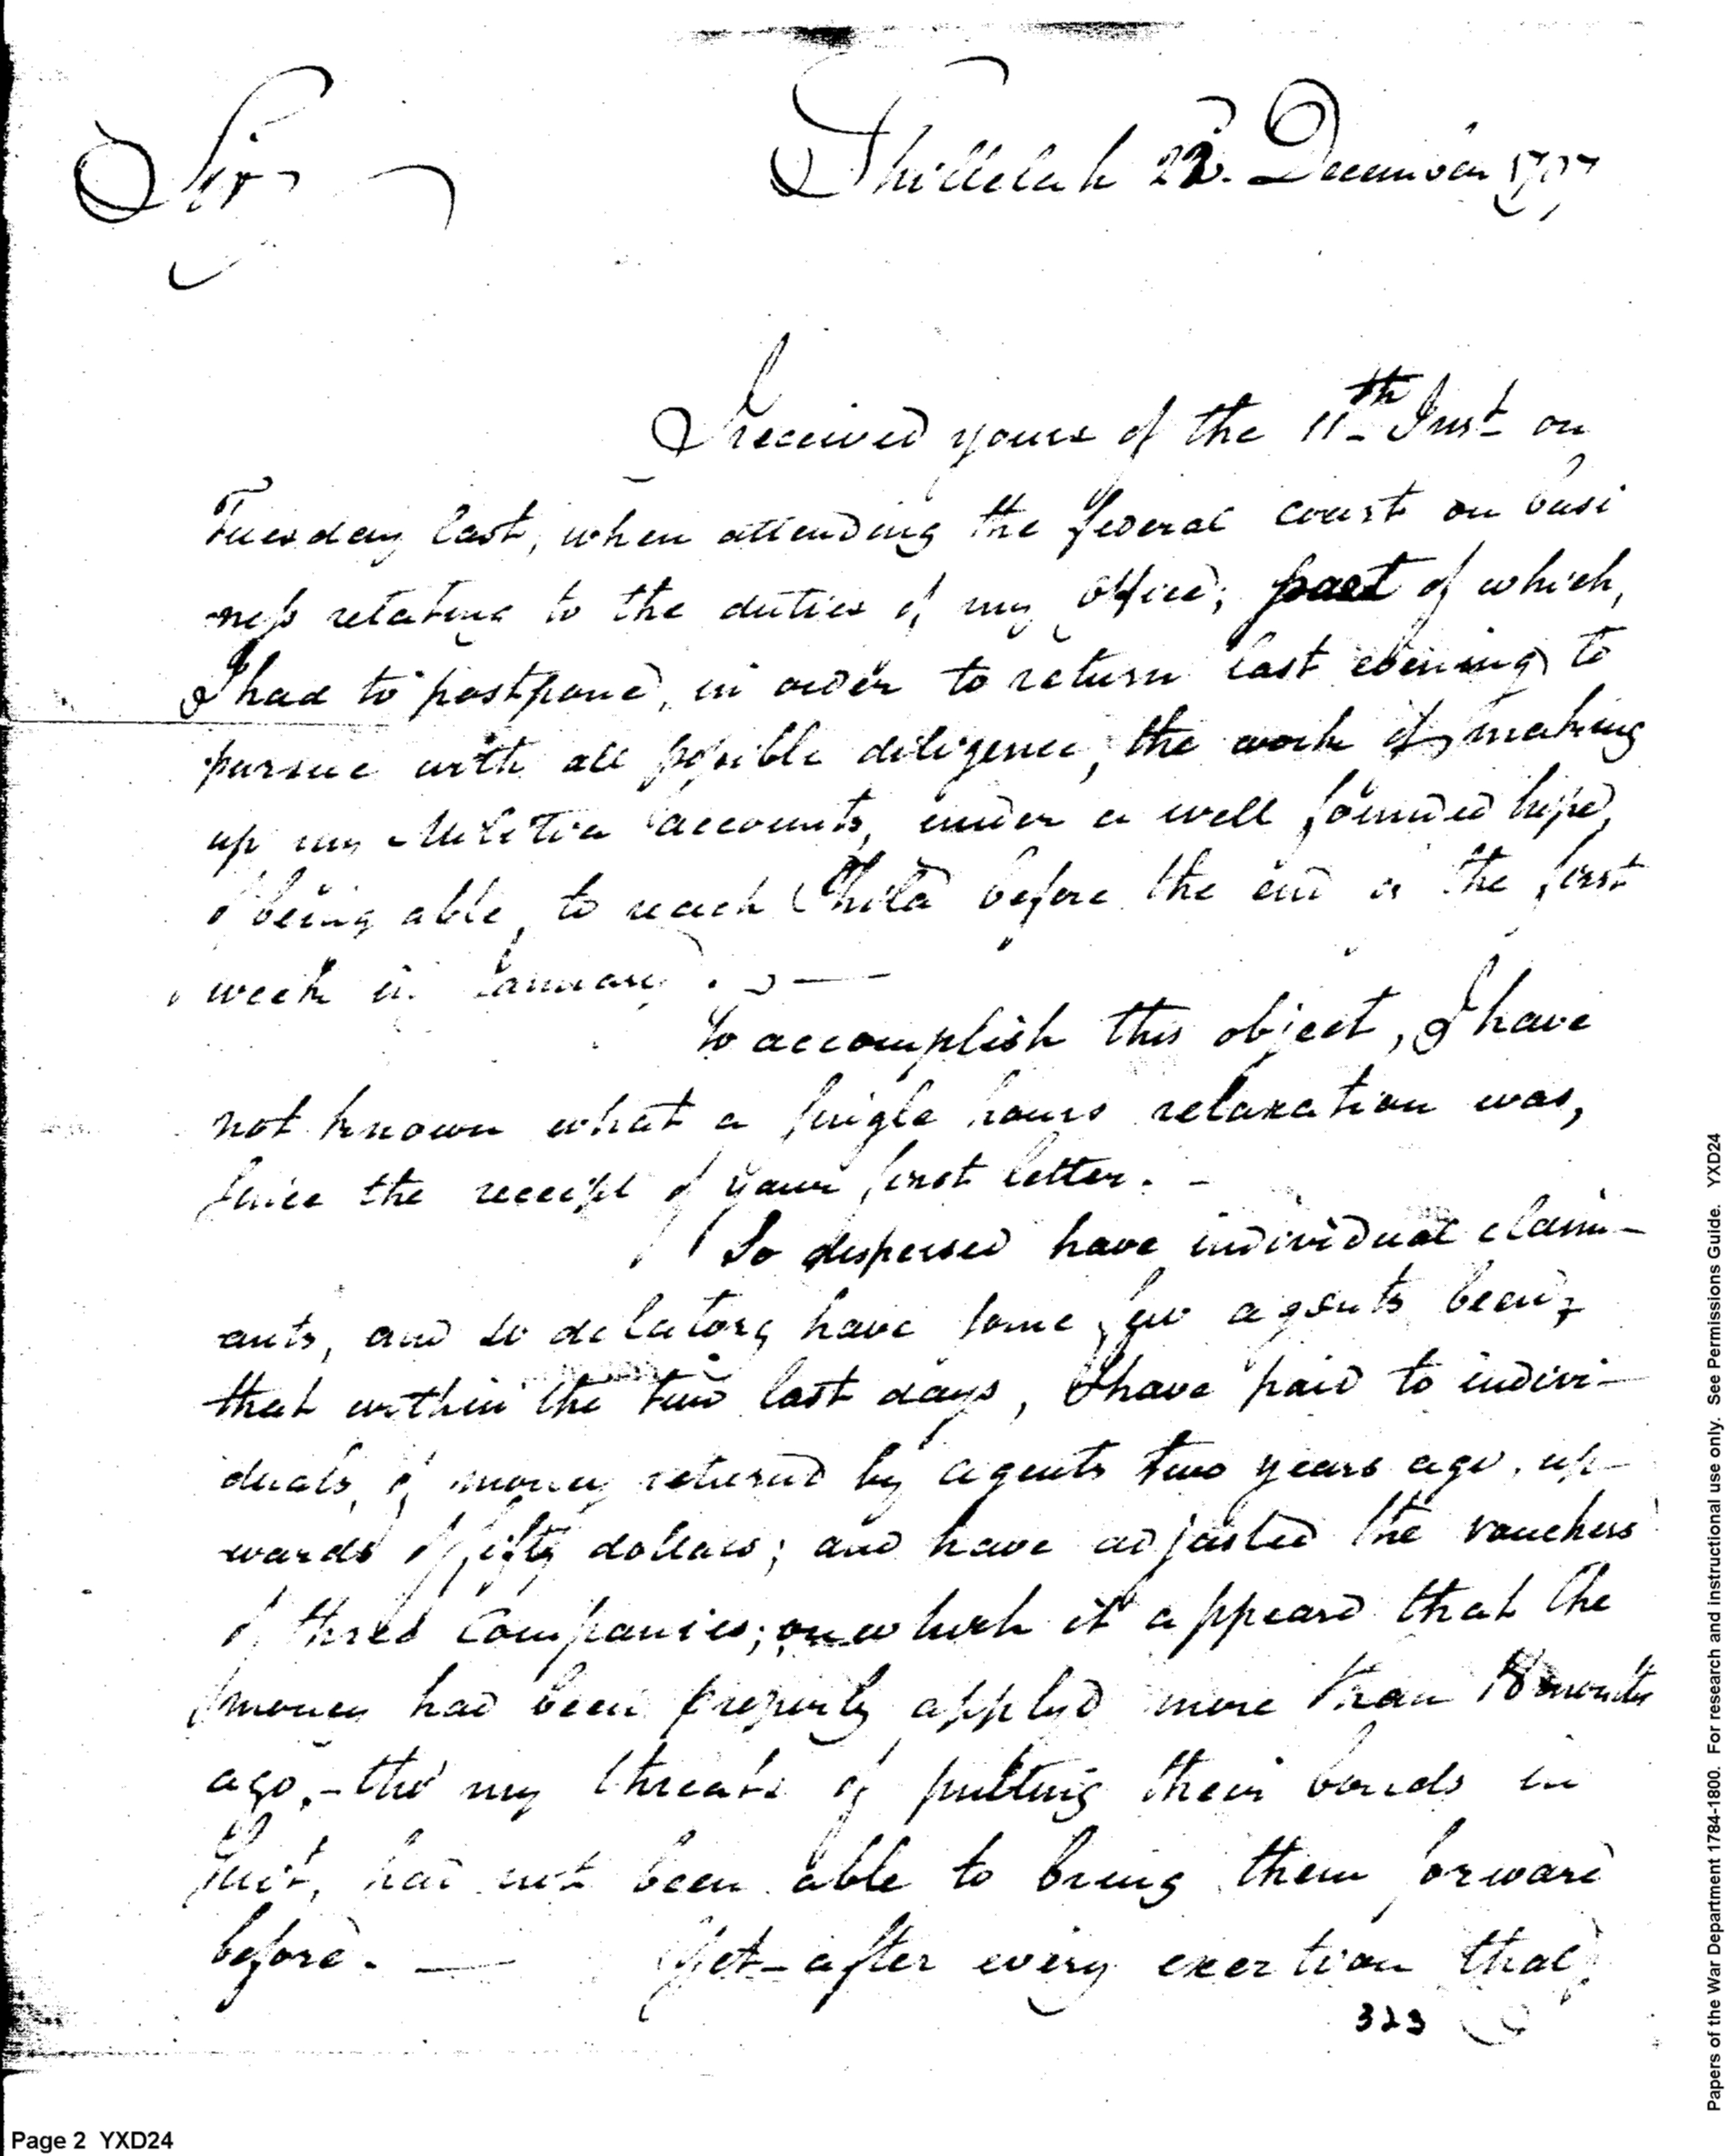 Sir, Shillelah 22. December 1797
I received yours of the 11th Inst on
Tuesday last, when attending the federal court on busi
ness relating to the duties of my office; part of which,
I had to postpone, in order to return last evening to
pursue with all possible diligence, the work of making
up my Militia accounts, under a well founded hope,
of being able, to reach Phila before the end of the first
week in January. —
To accomplish this object, I have
not known what a single hours relaxation was,
since the receipt of your first letter. -
So dispersed have individual claim-
ants, and so delatory have some few agents been,
that within the two last days, I have paid to indivi-
duals, of money returnd by agents two years ago, up-
wards of fifty dollars; and have adjusted the vouchers
of three Companies; on which it appeard that the
money had been properly applyd more than 18 months
ago, - tho' my threats of putting their bonds in
suit, had not been able to bring them forward
before. — Yet - after every exertion that
323
Page 2 YXD24
Papers of the War Department 1784-1800. For research and instructional use only. See Permissions Guide. YXD24